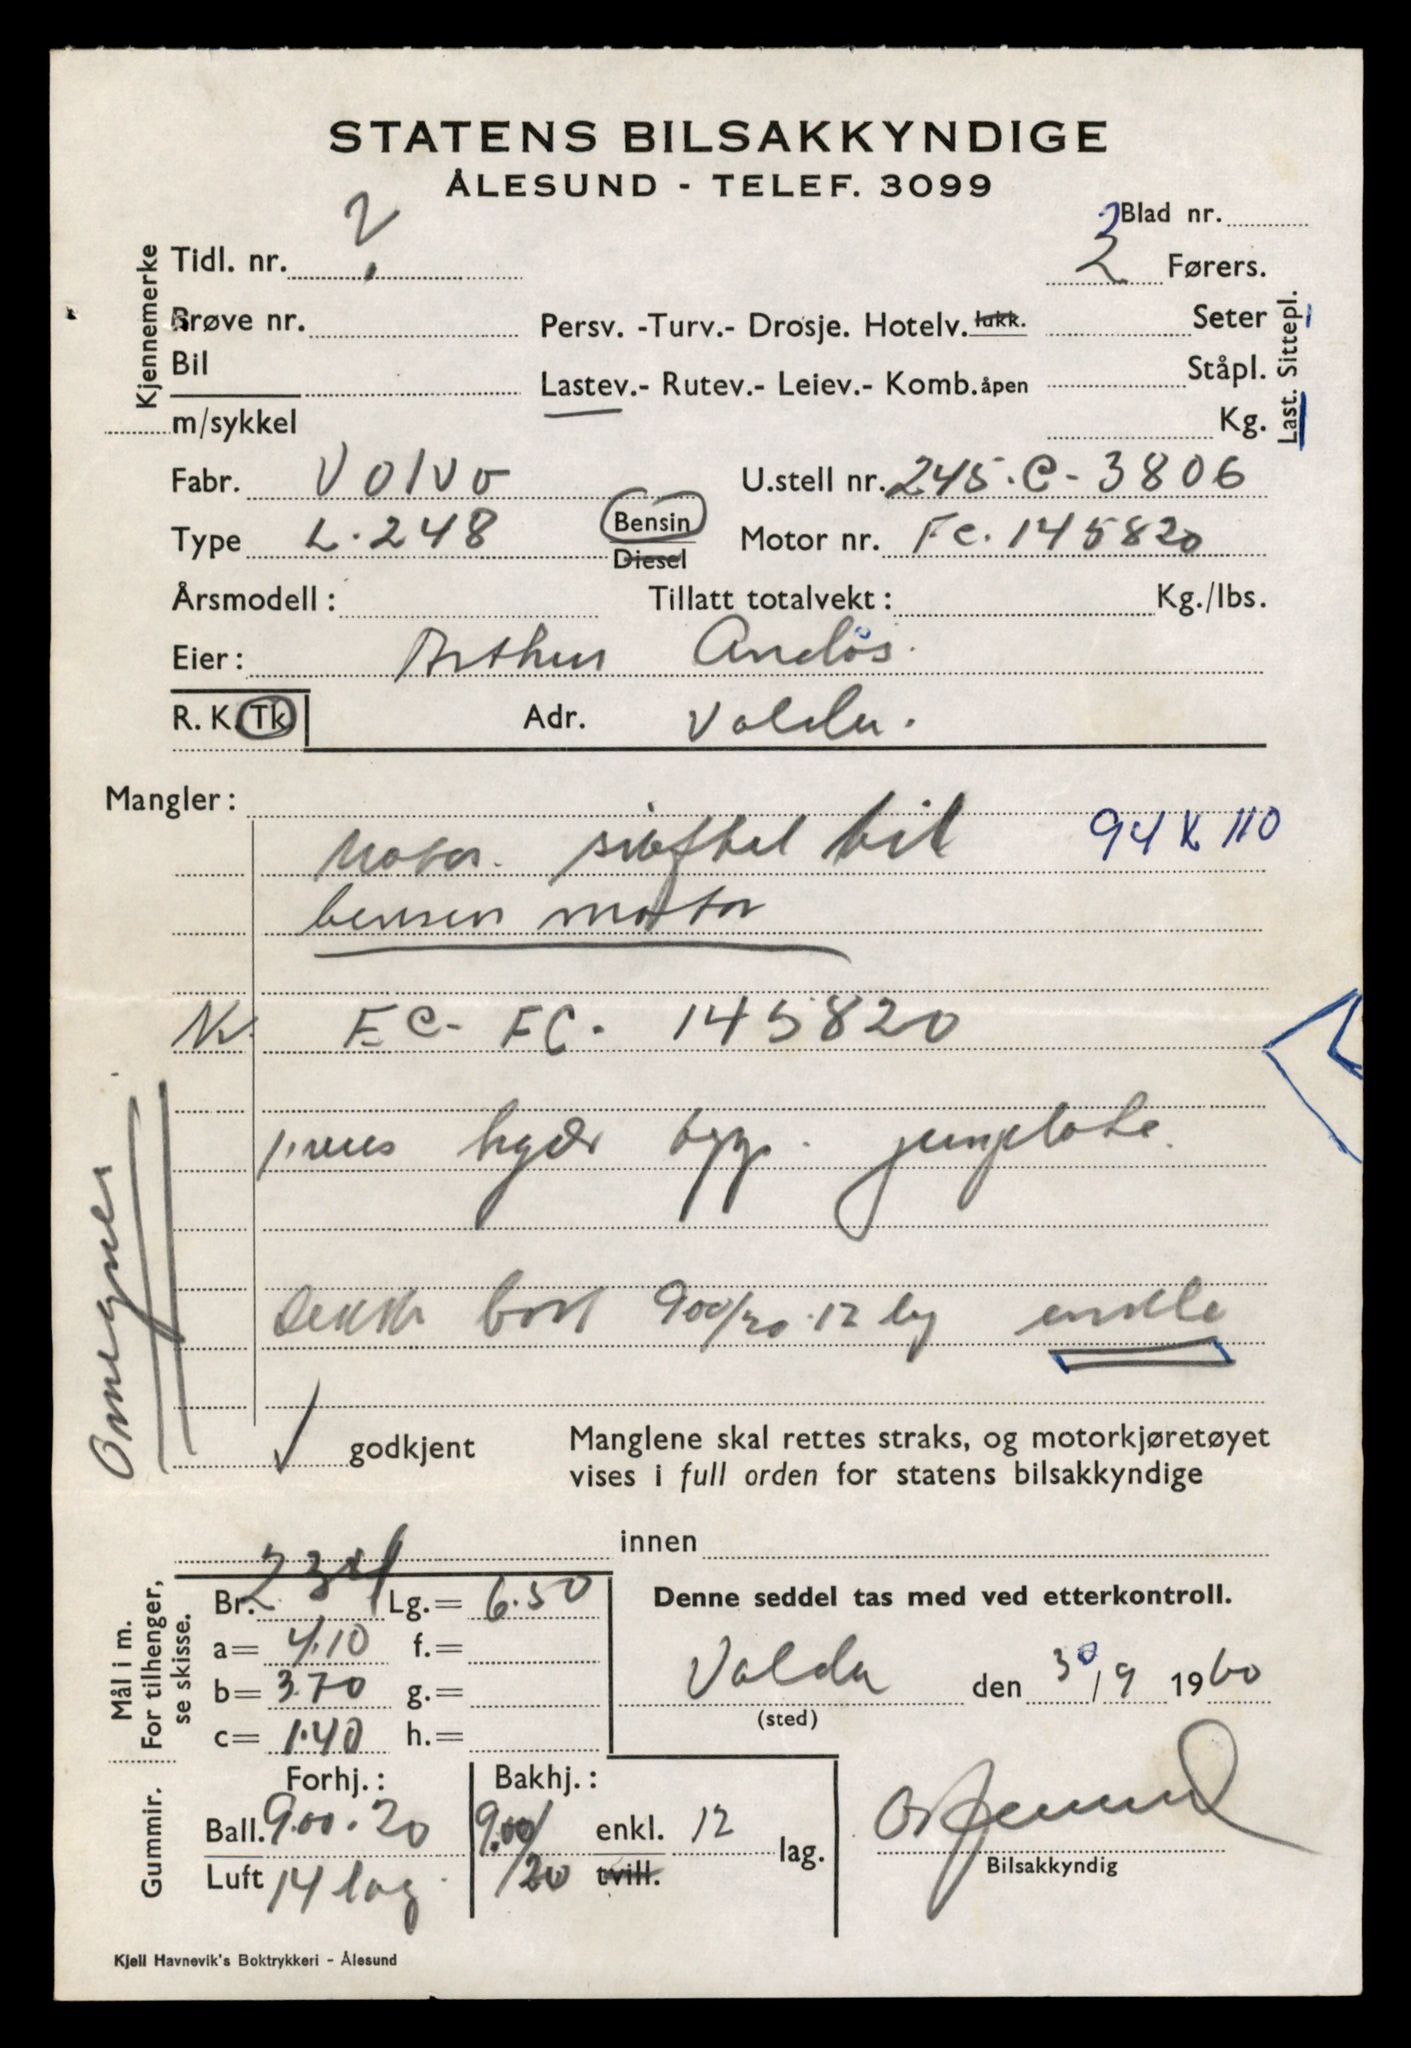 STATENS BILSAKKYNDIGE
ÅLESUND - TELEF. 3099
Blad nr.
Kjennemerke
Tidl. nr. ?
2 Førers.
Prøve nr.
Persv. -Turv.- Drosje. Hotelv. lukk.
Seter
Bil
Lastev.- Rutev.- Leiev.- Komb. åpen
Ståpl.
m/sykkel
Kg.
Last. Sittepl.
Fabr. Volvo
U.stell nr. 245.C-3806
Type L.248
Bensin
Diesel
Motor nr. FC. 145820
Årsmodell:
Tillatt totalvekt: Kg./lbs.
Eier: Arthur Andös.
R. K. Tk
Adr. Volda.
Mangler:
94 K 110
Motor. skiftet til
bensin motor
Nr. EC- FC. 145820
bygg.
Dekk bort 900/20.12 lag enkle
Omegner
godkjent
Manglene skal rettes straks, og motorkjøretøyet
vises i full orden for statens bilsakkyndige
innen
Mål i m.
For tilhenger,
se skisse.
Br. 231 Lg.= 6.50
a= 4.10 f.=
b= 3.70 g.=
c= 1.40 h.=
Denne seddel tas med ved etterkontroll.
Volda den 30/9 1960
(sted)
Gummir.
Forhj.: Bakhj.:
Ball. 9.00.20 9.00/20 enkl. 12 lag.
Luft 14 lag tvill.
Bilsakkyndig
Kjell Havnevik's Boktrykkeri - Ålesund